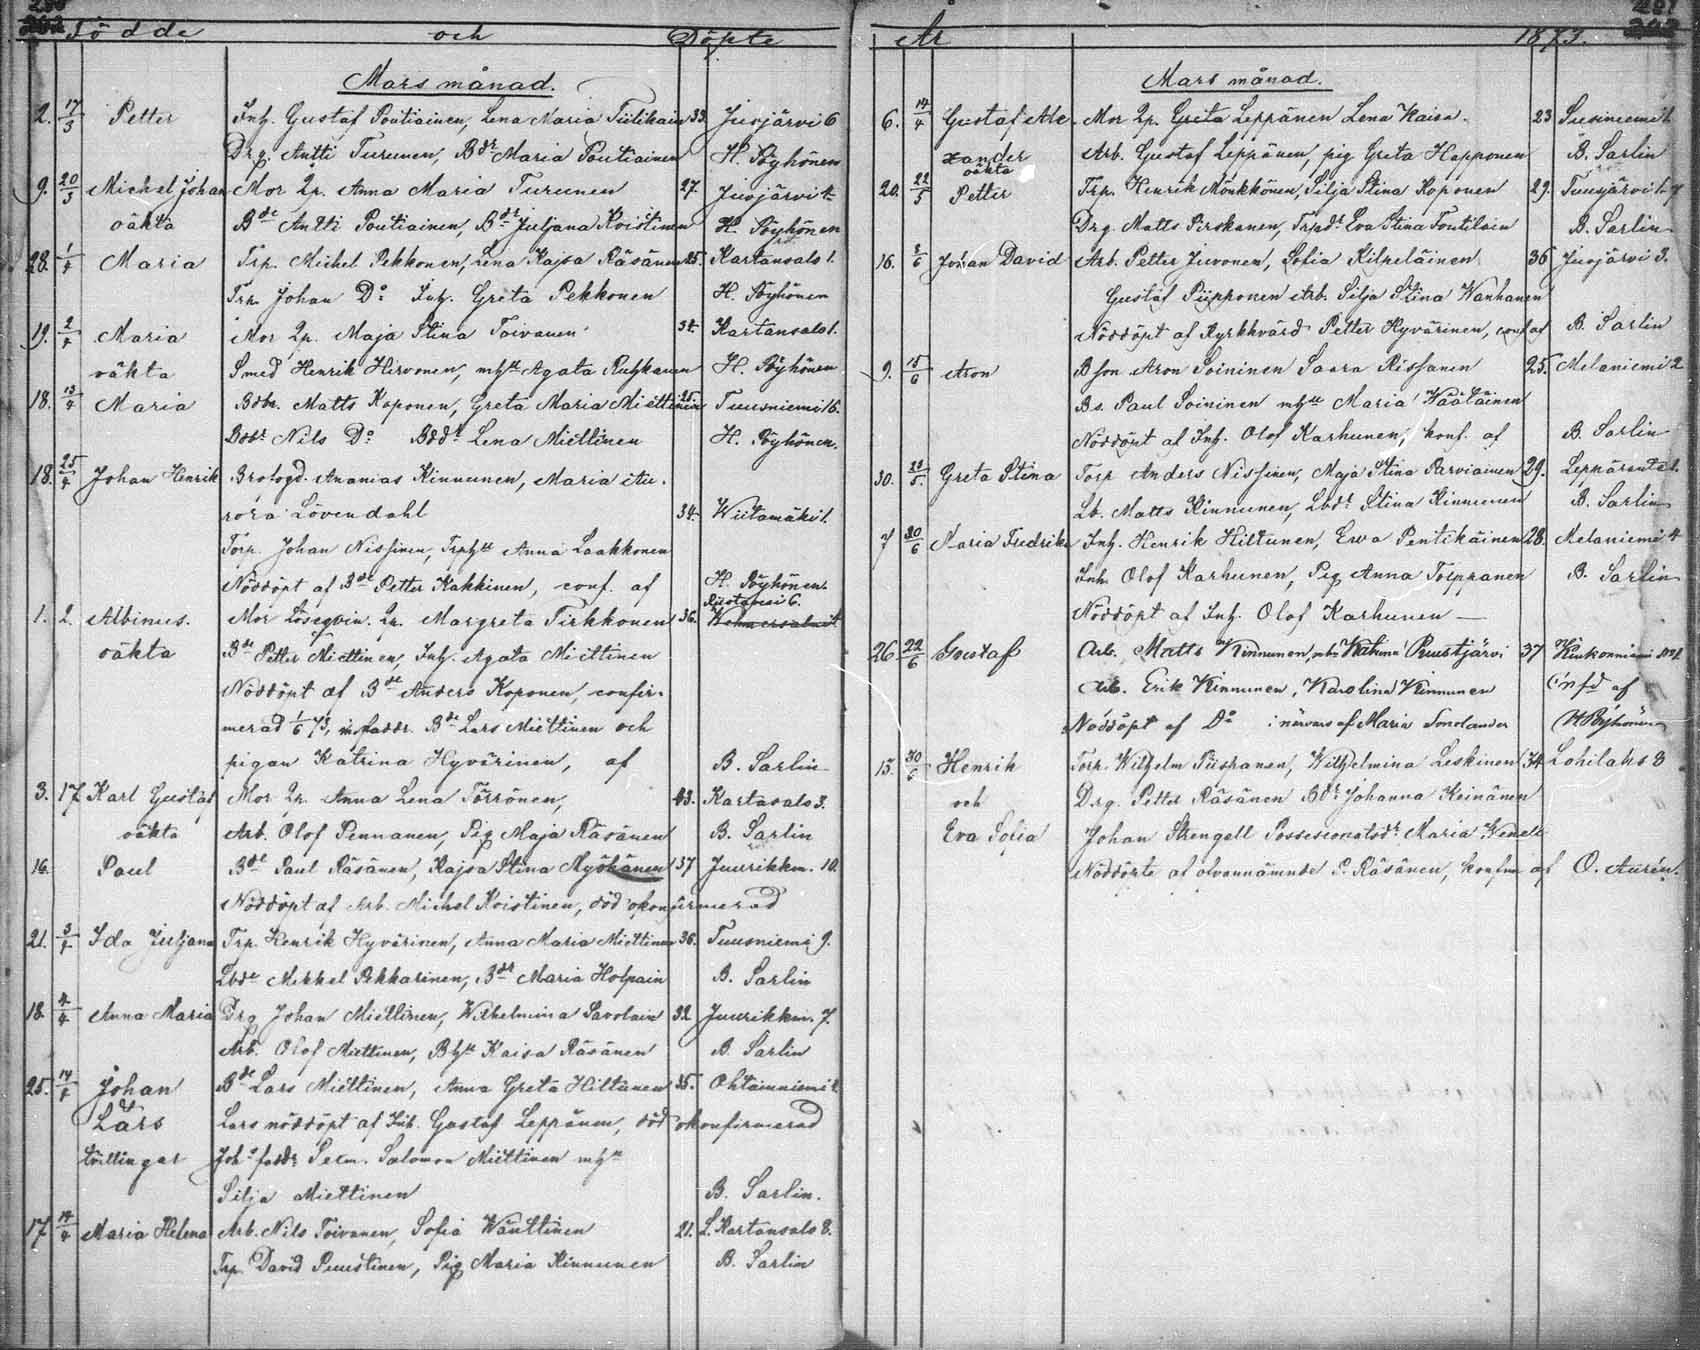 202 Födde och Döpte
Mars månad.
2. 17/3 Petter Inh. Gustaf Poutiainen, Lena Maria Tiilikain 33. Juojärvi 6
Drg. Antti Turunen, Bdr Maria Poutiainen H. Pöyhönen
9. 20/3 Michel Johan Mor Qv. Anna Maria Turunen 27. Juojärvi
oäkta Bde Antti Poutiainen, Bdr Juljana Koistinen H. Pöyhönen
28. 1/4 Maria Trp. Michel Pekkonen, Lena Kajsa Räsänen 25. Kartansalo 1.
Trp. Johan Do Inh. Greta Pekkonen H. Pöyhönen
19. 2/4 Maria Mor Qv. Maja Stina Toivanen 34. Kartansalo 1.
oäkta Smed Henrik Hirvonen, mhu Agata Ruhkanen H. Pöyhönen
18. 13/4 Maria Bdbr. Matts Koponen, Greta Maria Miettinen 25. Tuusniemi 16.
Bdbr Nils Do Bddr Lena Miettinen H. Pöyhönen.
18. 25/4 Johan Henrik Brofogd. Ananias Kinnunen, Maria Au-
rora Lövendahl 34. Wiitamäki 1.
Torp. Johan Nissinen, Trphu Anna Laakkonen
Nöddöpt af Bde Petter Kakkinen, conf. af H. Pöyhönen.
Riistavesi 6.
1. 2. Albinus. Mor Lösegvin. Qv. Margreta Tirkkonen 36.
oäkta Bde Petter Miettinen, Inh. Agata Miettinen
Nöddöpt af Bde Anders Koponen, confir-
merad 1/6 73, faddr. Bde Lars Miettinen och
pigan Katrina Hyvärinen, af B. Sarlin
3. 17 Karl Gustaf Mor Qv. Anna Lena Törrönen, 43. Kartasalo 3.
oäkta Arb. Olof Pennanen, Pig Maja Räsänen B. Sarlin
16. Paul Bde Paul Räsänen, Kajsa Stina Myökänen 37 Juurikkm. 10.
Nöddöpt af Arb. Michel Koistinen, död okonfirmerad
21. 3/4 Ida Juljana Trp. Henrik Hyvärinen, Anna Maria Miettinen 36. Tuusniemi 9.
Lbde Mikkel Pekkarinen, Bdr Maria Holpain B. Sarlin
18. 4/4 Anna Maria Drg Johan Miettinen, Wilhelmina Savolain 32 Juurikkm. 7.
Arb. Olof Miettinen, Bhu Kaisa Räsänen B. Sarlin
25. 14/4 Johan Bde Lars Miettinen, Anna Greta Hiltunen 35. Ohtaanniemi 2
Lars Lars nöddöpt af Inh. Gustaf Leppänen, död okonfirmerad
tvillingar Johs faddr Serm. Salomon Miettinen mhu
Silja Miettinen B. Sarlin.
17 14/4 Maria Helena Arb. Nils Toivanen, Sofia Wänttinen 21. L. Kartansalo 8.
Trp. David Puustinen, Pig Maria Kinnunen B. Sarlin
År 1873.
Mars månad.
6. 14/4 Gustaf Ale- Mor Qv. Greta Leppänen Lena Kaisa. 23 Susiniemi 1.
xander Arb. Gustaf Leppänen, pig Greta Happonen B. Sarlin
oäkta
20. 22/5 Petter Trp. Henrik Mönkkönen, Silja Stina Koponen 29. Tuusjärvi 7
Drg. Matts Pirskanen, Trpdr Eva Stina Toutilain B. Sarlin
16. 2/6 Johan David Arb. Petter Juvonen, Sofia Kilpeläinen 36 Juojärvi 3.
Gustaf Piipponen Arb. Silja Stina Wanhanen
Nöddöpt af Kyrkhvärd Petter Hyvärinen, conf af B. Sarlin
9. 15/6 Aron Bson Aron Soininen Saara Rissanen 25. Melaniemi 2
Bs. Paul Soininen mhu Maria Wäätäinen
Nöddöpt af Inh. Olof Karhunen, konf. af B. Sarlin
30. Greta Stina Torp Anders Nissinen, Maja Stina Parviainen 29. Leppäranta 1.
Lb. Matts Kinnunen, Lbdr Stina Kinnunen B. Sarlin
7 30/6 Maria Fredrika Inh. Henrik Hiltunen, Ewa Pentikäinen 28. Melaniemi 4
Inh. Olof Karhunen, Pig Anna Toeppanen B. Sarlin
Nöddöpt af Inh. Olof Karhunen —
26 22/6 Gustaf Arb. Matts Kinnunen, Katrina Ruustjärvi 37 Kinkonniemi
Arb. Erik Kinnunen, Karolina Kinnunen Cnfd af
Nöddöpt af Do i närvaro af Maria Smolander H Pöyhönen
15. 30/6 Henrik Torp. Wilhelm Piispanen, Wilhelmina Leskinen 34 Lohilaks 3
och Drg. Petter Räsänen Bdr Johanna Keinänen
Eva Sofia Johan Strengell Possesionatsdr Maria Wenell
Nöddöpte af ofvannämnde P. Räsänen, konfm af O. Aurén.